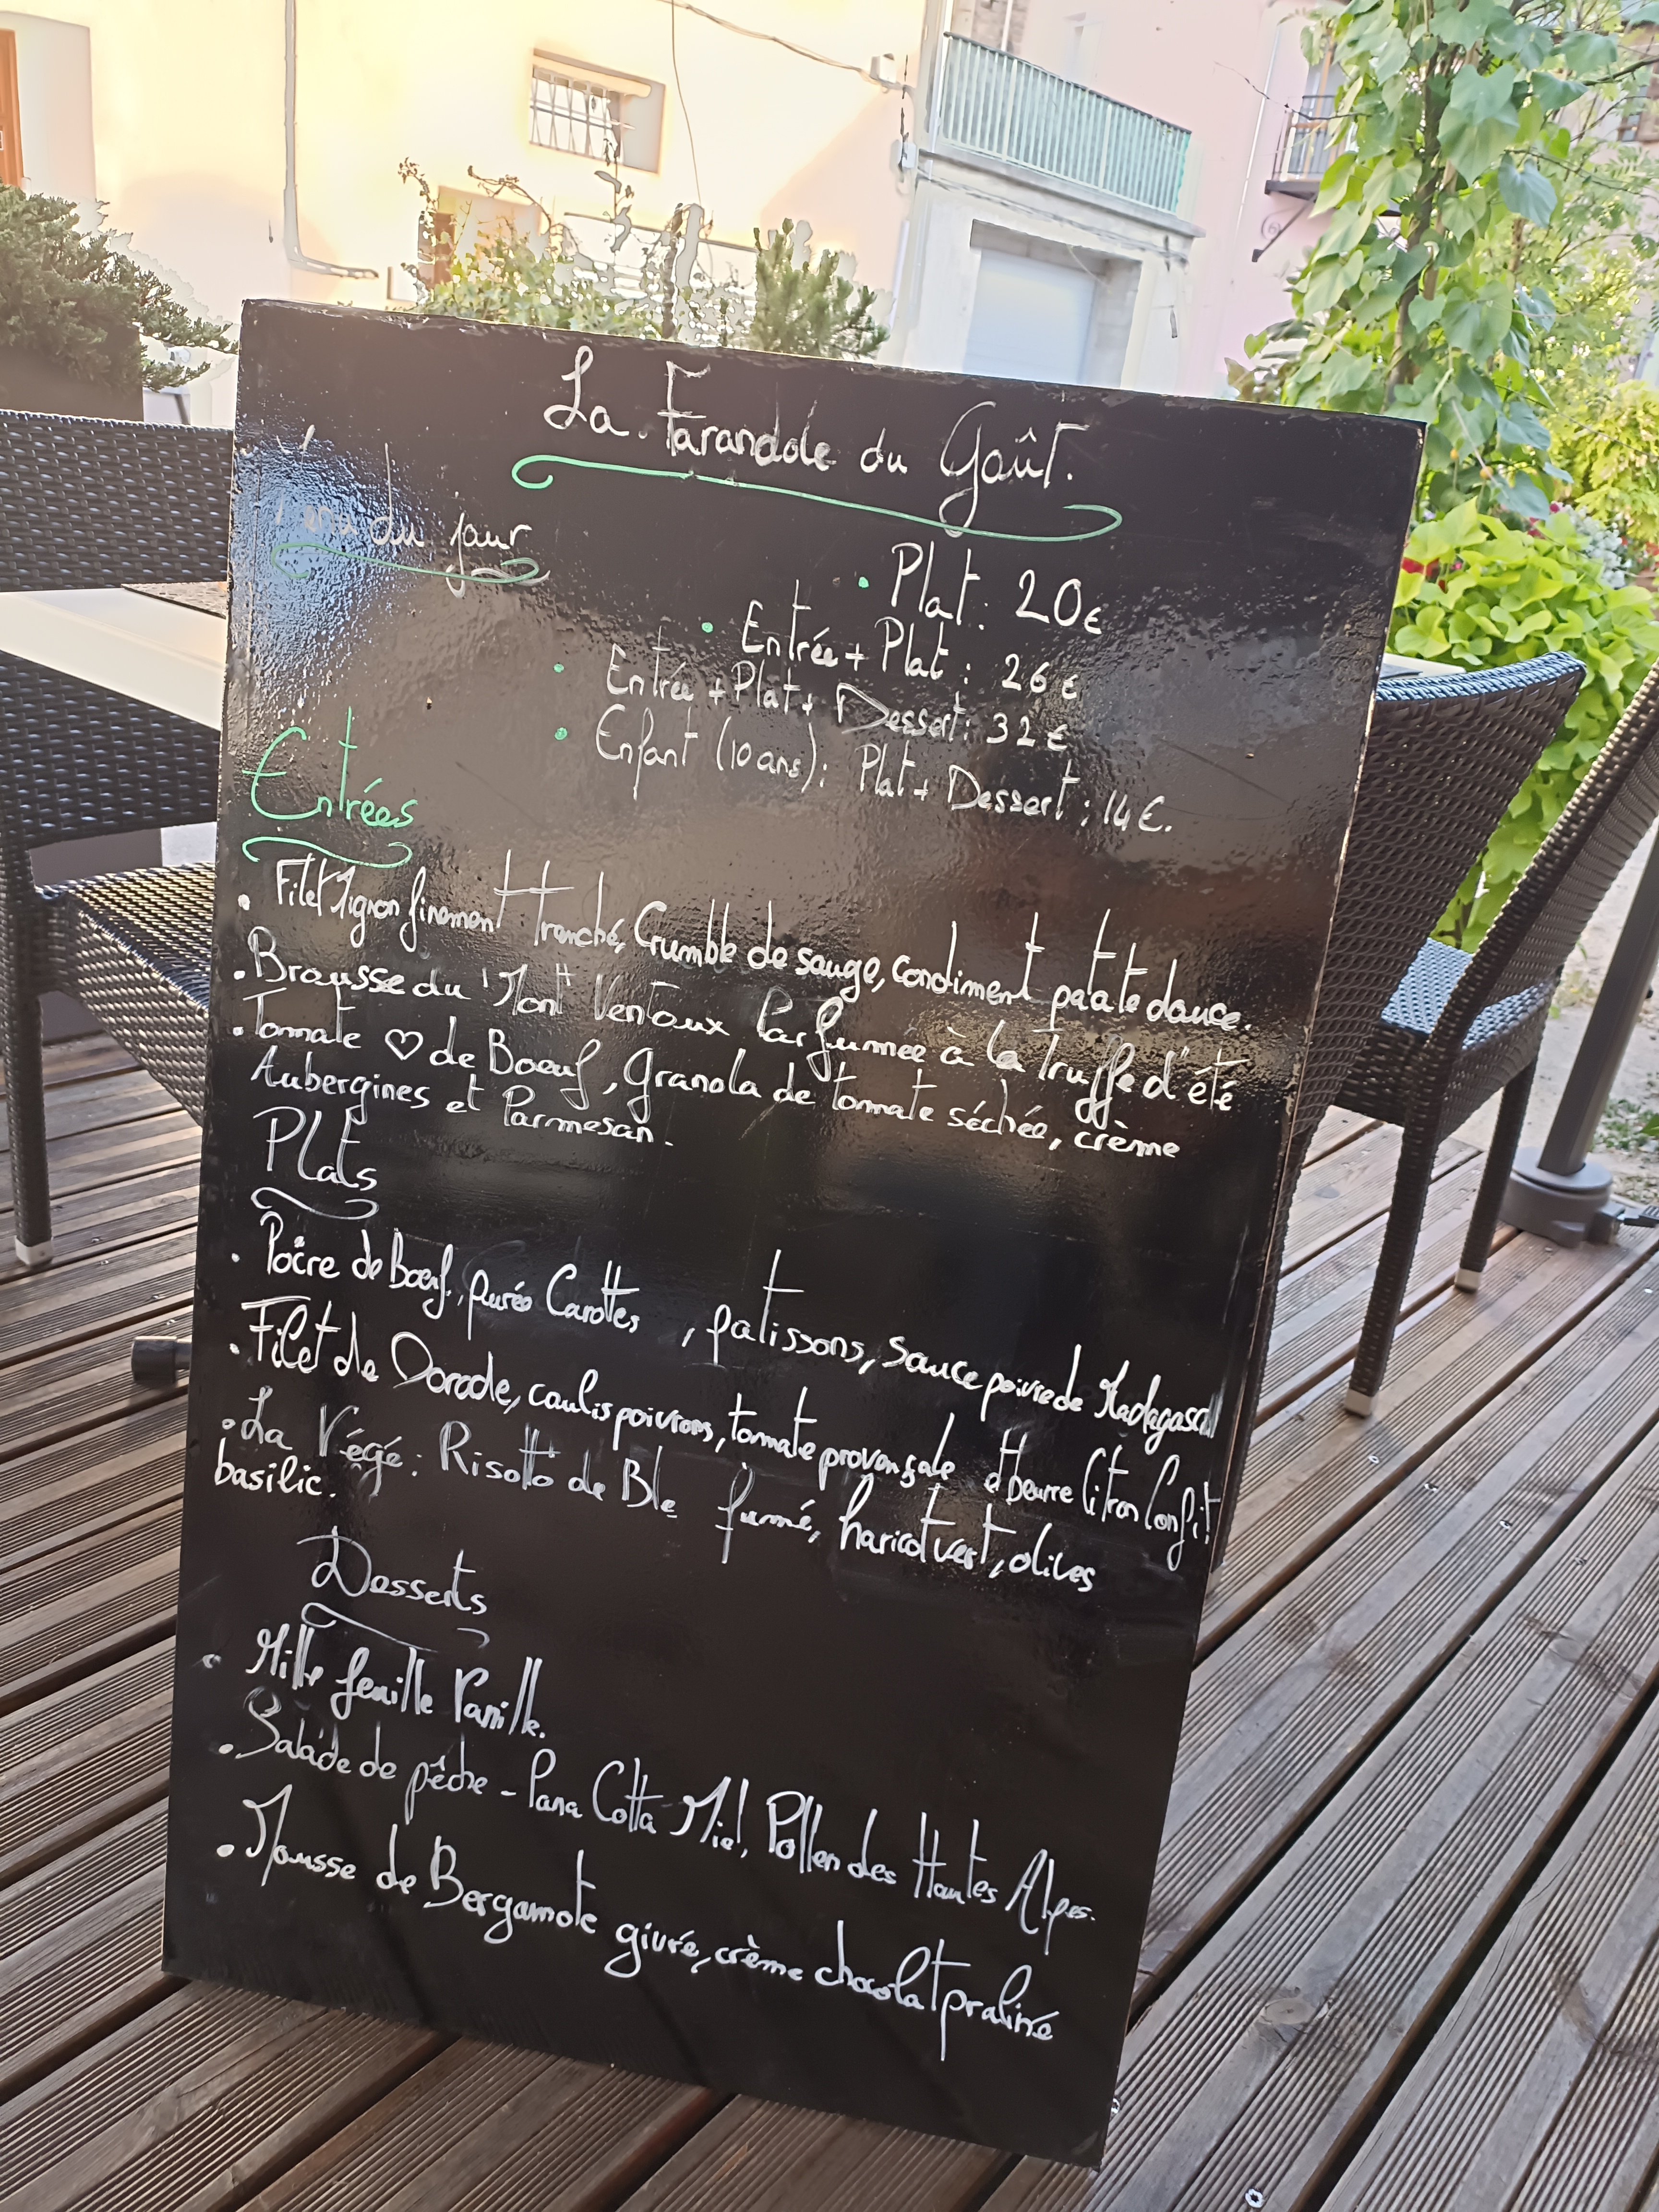 La Farandole du Goût.
Menu du jour
• Plat : 20€
• Entrée + Plat : 26€
• Entrée + Plat + Dessert : 32€
• Enfant (10 ans) : Plat + Dessert : 14€.
Entrées
• Filet Mignon finement tranché, Crumble de sauge, condiment patate douce.
• Brousse du Mont Ventoux Parfumée à la truffe d'été
• Tomate ♡ de Boeuf, Granola de tomate séchée, crème
Aubergines et Parmesan.
Plats
• de Boeuf, purée Carottes, patissons, sauce poivre de
• Filet de Dorade, coulis poivrons, tomate provençale et beurre Citron Confit!
• La Végé : Risotto de Blé fumé, haricot vert, olives
basilic.
Desserts
• Mille feuille Vanille.
• Salade de pêche - Pana Cotta Miel, Pollen des Hautes Alpes.
• Mousse de Bergamote givré, crème chocolat praliné